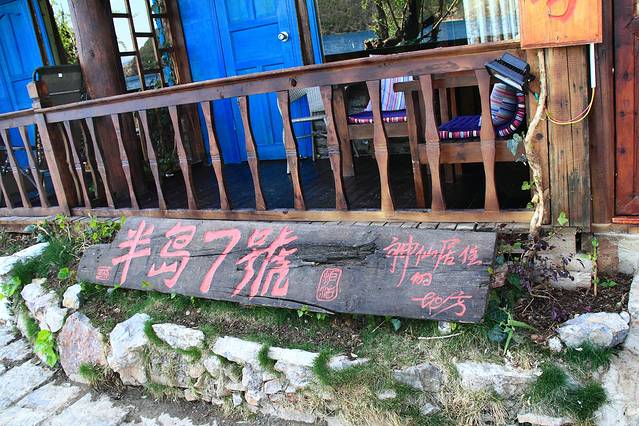 半岛7號
神仙居住
的